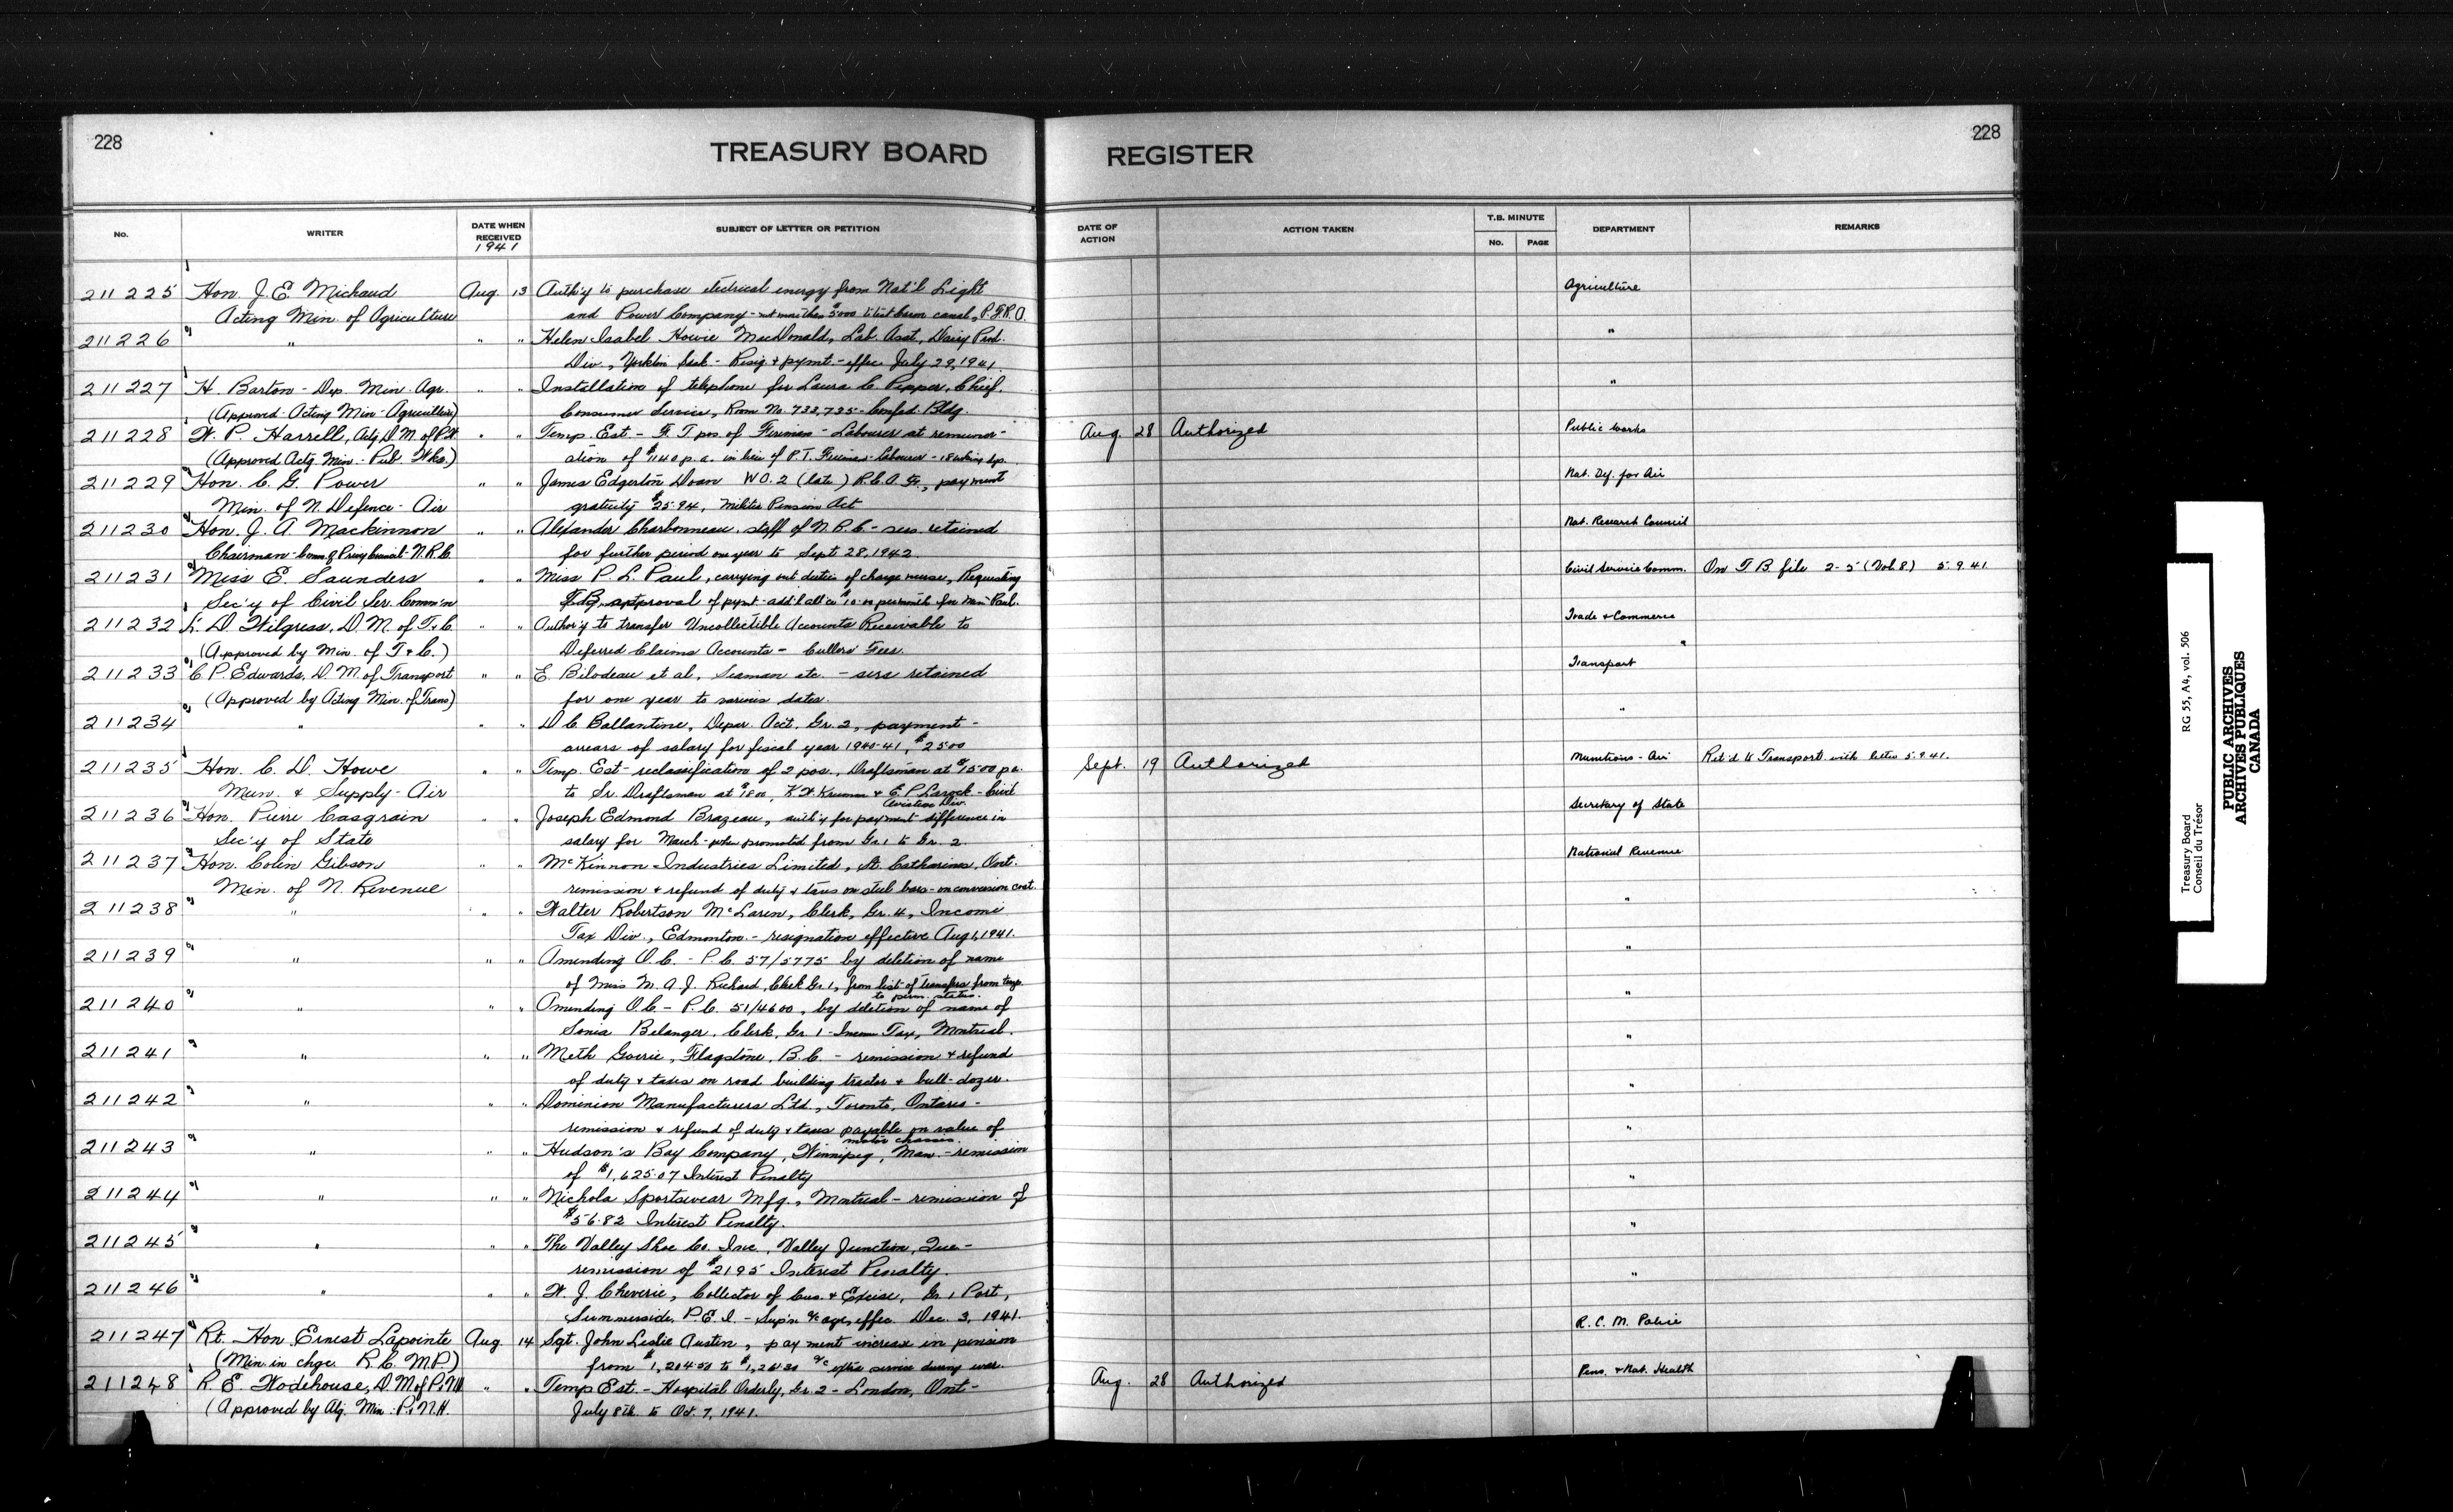 228
TREASURY BOARD
REGISTER
228
No.
WRITER
DATE WHEN RECEIVED
1941
SUBJECT OF LETTER OR PETITION
DATE OF ACTION
ACTION TAKEN
T.B. MINUTE
No.
PAGE
DEPARTMENT
REMARKS
211225 Hon. J. E. Michaud Aug. 13 Auth'y to purchase electrical energy from Nat'l Light Agriculture
Acting Min. of Agriculture and Power Company - not more than $5000 canal, P.F.R.A.
211226 " " " Helen Isabel Howie MacDonald, Lab. Asst., Dairy Prod. "
Div., Yorkton Sask - Resig & pymt. - effec July 29, 1941.
211227 H. Barton - Dep. Min. Agr. " " Installation of telephone for Laura C. Pepper, Chief, "
(Approved - Acting Min - Agriculture) Consumer Service, Room No. 733, 735 - Confed. Bldg.
211228 W. P. Harrell, Actg D.M. of P.W. " " Temp. Est - F. T pos of Fireman - Labourer at remuner- Aug. 28 Authorized Public Works
(Approved Actg. Min. - Pub. Wks.) ation of $1140 p.a. in lieu of P.T. Fireman - Labourer -
211229 Hon. C. G. Power " " James Edgerton Doan W.O.2 (late) R.C.A.F., payment Nat. Def. for Air
Min. of N. Defence - Air gratuity $25.94, Militia Pension Act
211230 Hon. J. A. Mackinnon " " Alexander Charbonneau, staff of N.R.C - ser. retained Nat. Research Council
Chairman - Comm. of Privy Council - N.R.C. for further period one year to Sept 28, 1942
211231 Miss E. Saunders " " Miss P. L. Paul, carrying out duties of charge nurse, Requesting Civil Service Comm. On T B file 2-5 (Vol. 8) 5.9.41
Sec'y of Civil Ser. Comm'n T.B. approval of pymt - add'l all'ce $10.00 per month for Miss Paul.
211232 L. D. Wilgress, D.M. of T. & C. " " Author'y to transfer Uncollectible Accounts Receivable to Trade & Commerce
(Approved by Min. of T & C.) Deferred Claims Accounts - Cullers' Fees. "
211233 C. P. Edwards, D.M. of Transport " " E. Bilodeau et al, Seaman etc. - sers retained Transport
(Approved by Acting Min. of Trans) for one year to various dates.
211234 " " " D C Ballantine, Depar. Acct. Gr. 2, payment - "
arrears of salary for fiscal year 1940-41, $25.00
211235 Hon. C. D. Howe " " Temp. Est - reclassification of 2 pos., Draftsman at $1500 p.a. Sept. 19 Authorized Munitions - Air Ret'd to Transport with letter 5.9.41.
Mun. & Supply - Air to Sr. Draftsman at $1800, K. W. Krumm & E. P. Larock - Civil
Aviation Div.
211236 Hon. Pierre Casgrain " " Joseph Edmond Brazeau, auth'y for payment difference in Secretary of State
Sec'y of State salary for March - when promoted from Gr. 1 to Gr. 2.
211237 Hon. Colin Gibson " " McKinnon Industries Limited, St. Catharines, Ont. National Revenue
Min. of N. Revenue remission & refund of duty & taxes on steel bars - on conversion cost.
211238 " " " Walter Robertson McLaren, Clerk, Gr. 4, Income "
Tax Div., Edmonton. - resignation effective Aug 1, 1941.
211239 " " " Amending O.C. - P.C. 57/5775 by deletion of name "
of Miss M. A. J. Richard, Clerk Gr. 1, from list of transfers from temp.
to perm. status.
211240 " " " Amending O.C. - P.C. 51/4600, by deletion of name of "
Sonia Belanger, Clerk, Gr. 1 - Income Tax, Montreal.
211241 " " " Meth Goerie, Flagstone, B.C. - remission & refund "
of duty & taxes on road building tractor & bull-dozer.
211242 " " " Dominion Manufacturers Ltd., Toronto, Ontario - "
remission & refund of duty & taxes payable on value of
motor chassis.
211243 " " " Hudson's Bay Company, Winnipeg, Man. - remission "
of $1,625.07 Interest Penalty
211244 " " " Nichola Sportswear Mfg., Montreal - remission of "
$56.82 Interest Penalty.
211245 " " " The Valley Shoe Co. Inc., Valley Junction, Que - "
remission of $21.95 Interest Penalty.
211246 " " " W. J. Cheverie, Collector of Cus. & Excise, Gr. 1 Port, "
Summerside, P.E.I. - Sup'n a/c age, effec. Dec. 3, 1941.
211247 Rt. Hon Ernest Lapointe Aug. 14 Sgt. John Leslie Austin, payment increase in pension R. C. M. Police
(Min. in chge. R.C.M.P.) from $1,204.50 to $1,261.30 a/c service during war.
211248 R. E. Wodehouse, D.M. of P.&N.H " " Temp Est. - Hospital Orderly, Gr. 2 - London, Ont - Aug. 28 Authorized Pens. & Nat. Health
(Approved by Min. P.&N.H. July 8th. to Oct. 7, 1941.
Treasury Board
Conseil du Trésor
RG 55, A4, vol. 506
PUBLIC ARCHIVES
ARCHIVES PUBLIQUES
CANADA